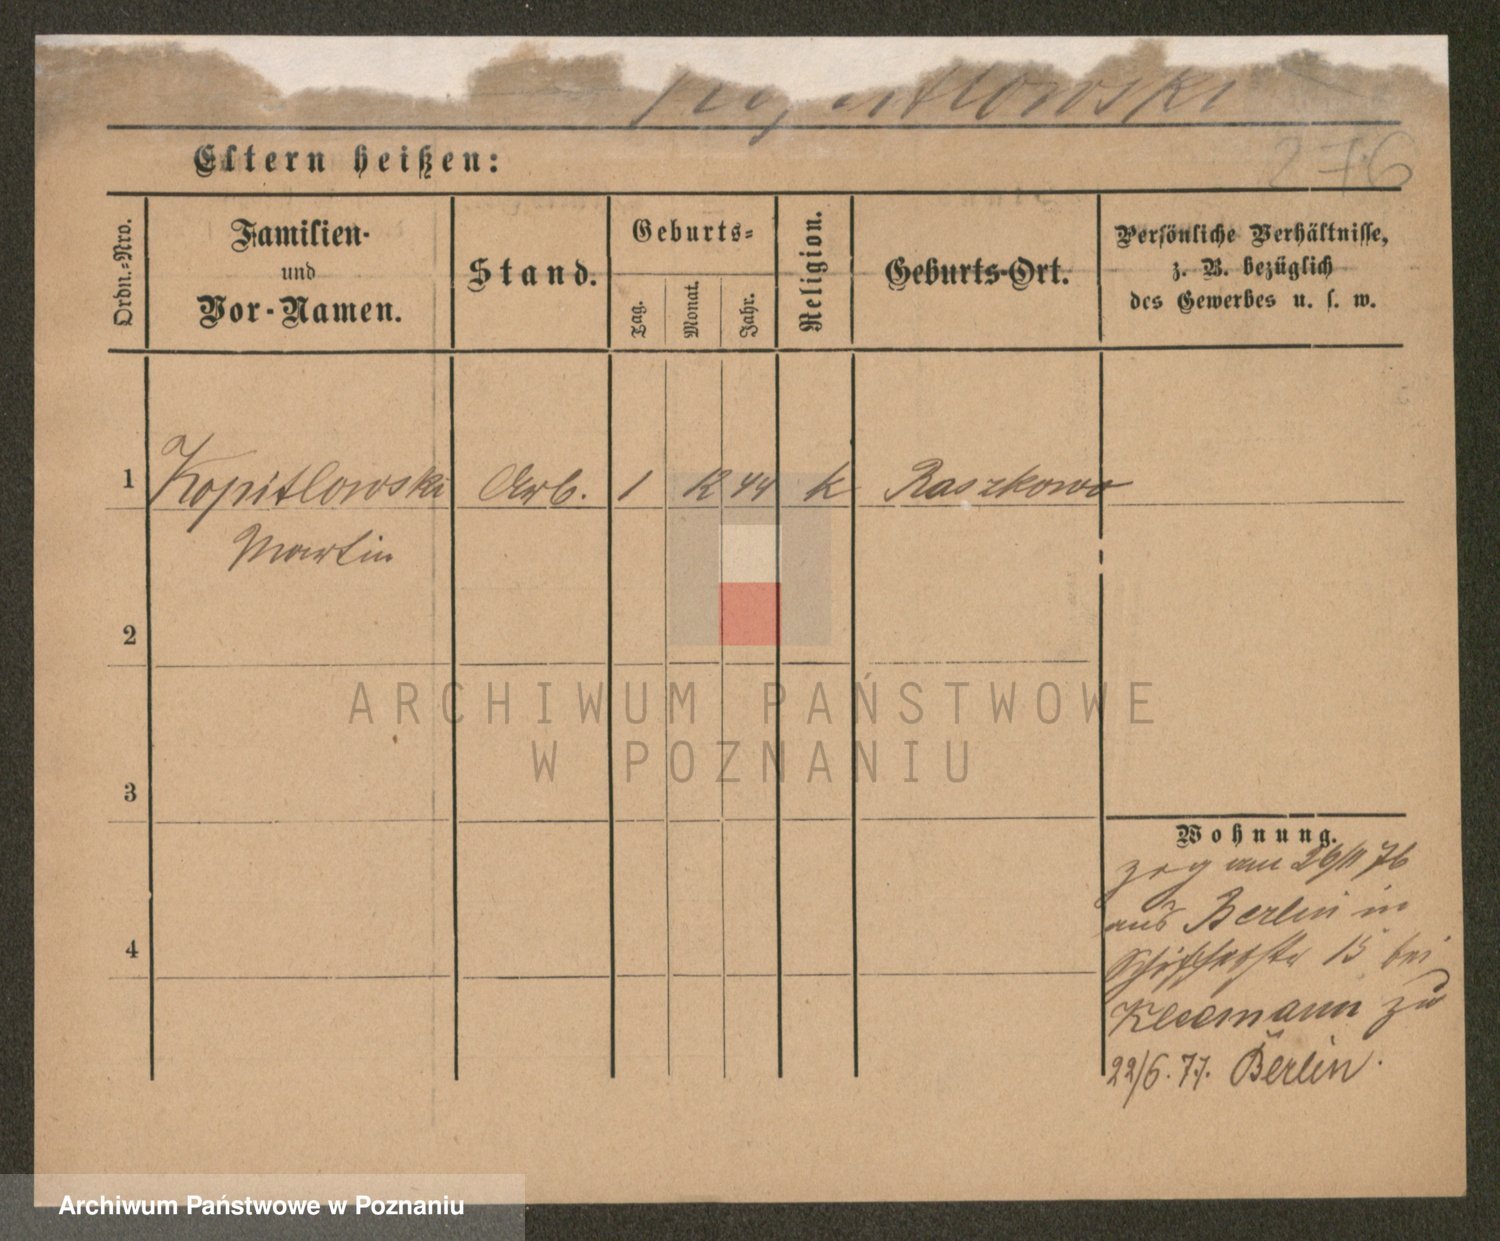 276
Eltern heißen:
Ordn.-Nro.
Familien-
und
Vor-Namen.
Stand.
Geburts-
Tag.
Monat.
Jahr.
Religion.
Geburts-Ort.
Persönliche Verhältnisse,
z. B. bezüglich
des Gewerbes u. s. w.
1 Kopitlowski Arb. 1 12 44 k Raszkowo
Martin
2
3
4
Wohnung.
zog am 29/11 76
aus Berlin in
15 bei
zu
22/6. 77. Berlin.
ARCHIWUM PAŃSTWOWE
W POZNANIU
Archiwum Państwowe w Poznaniu